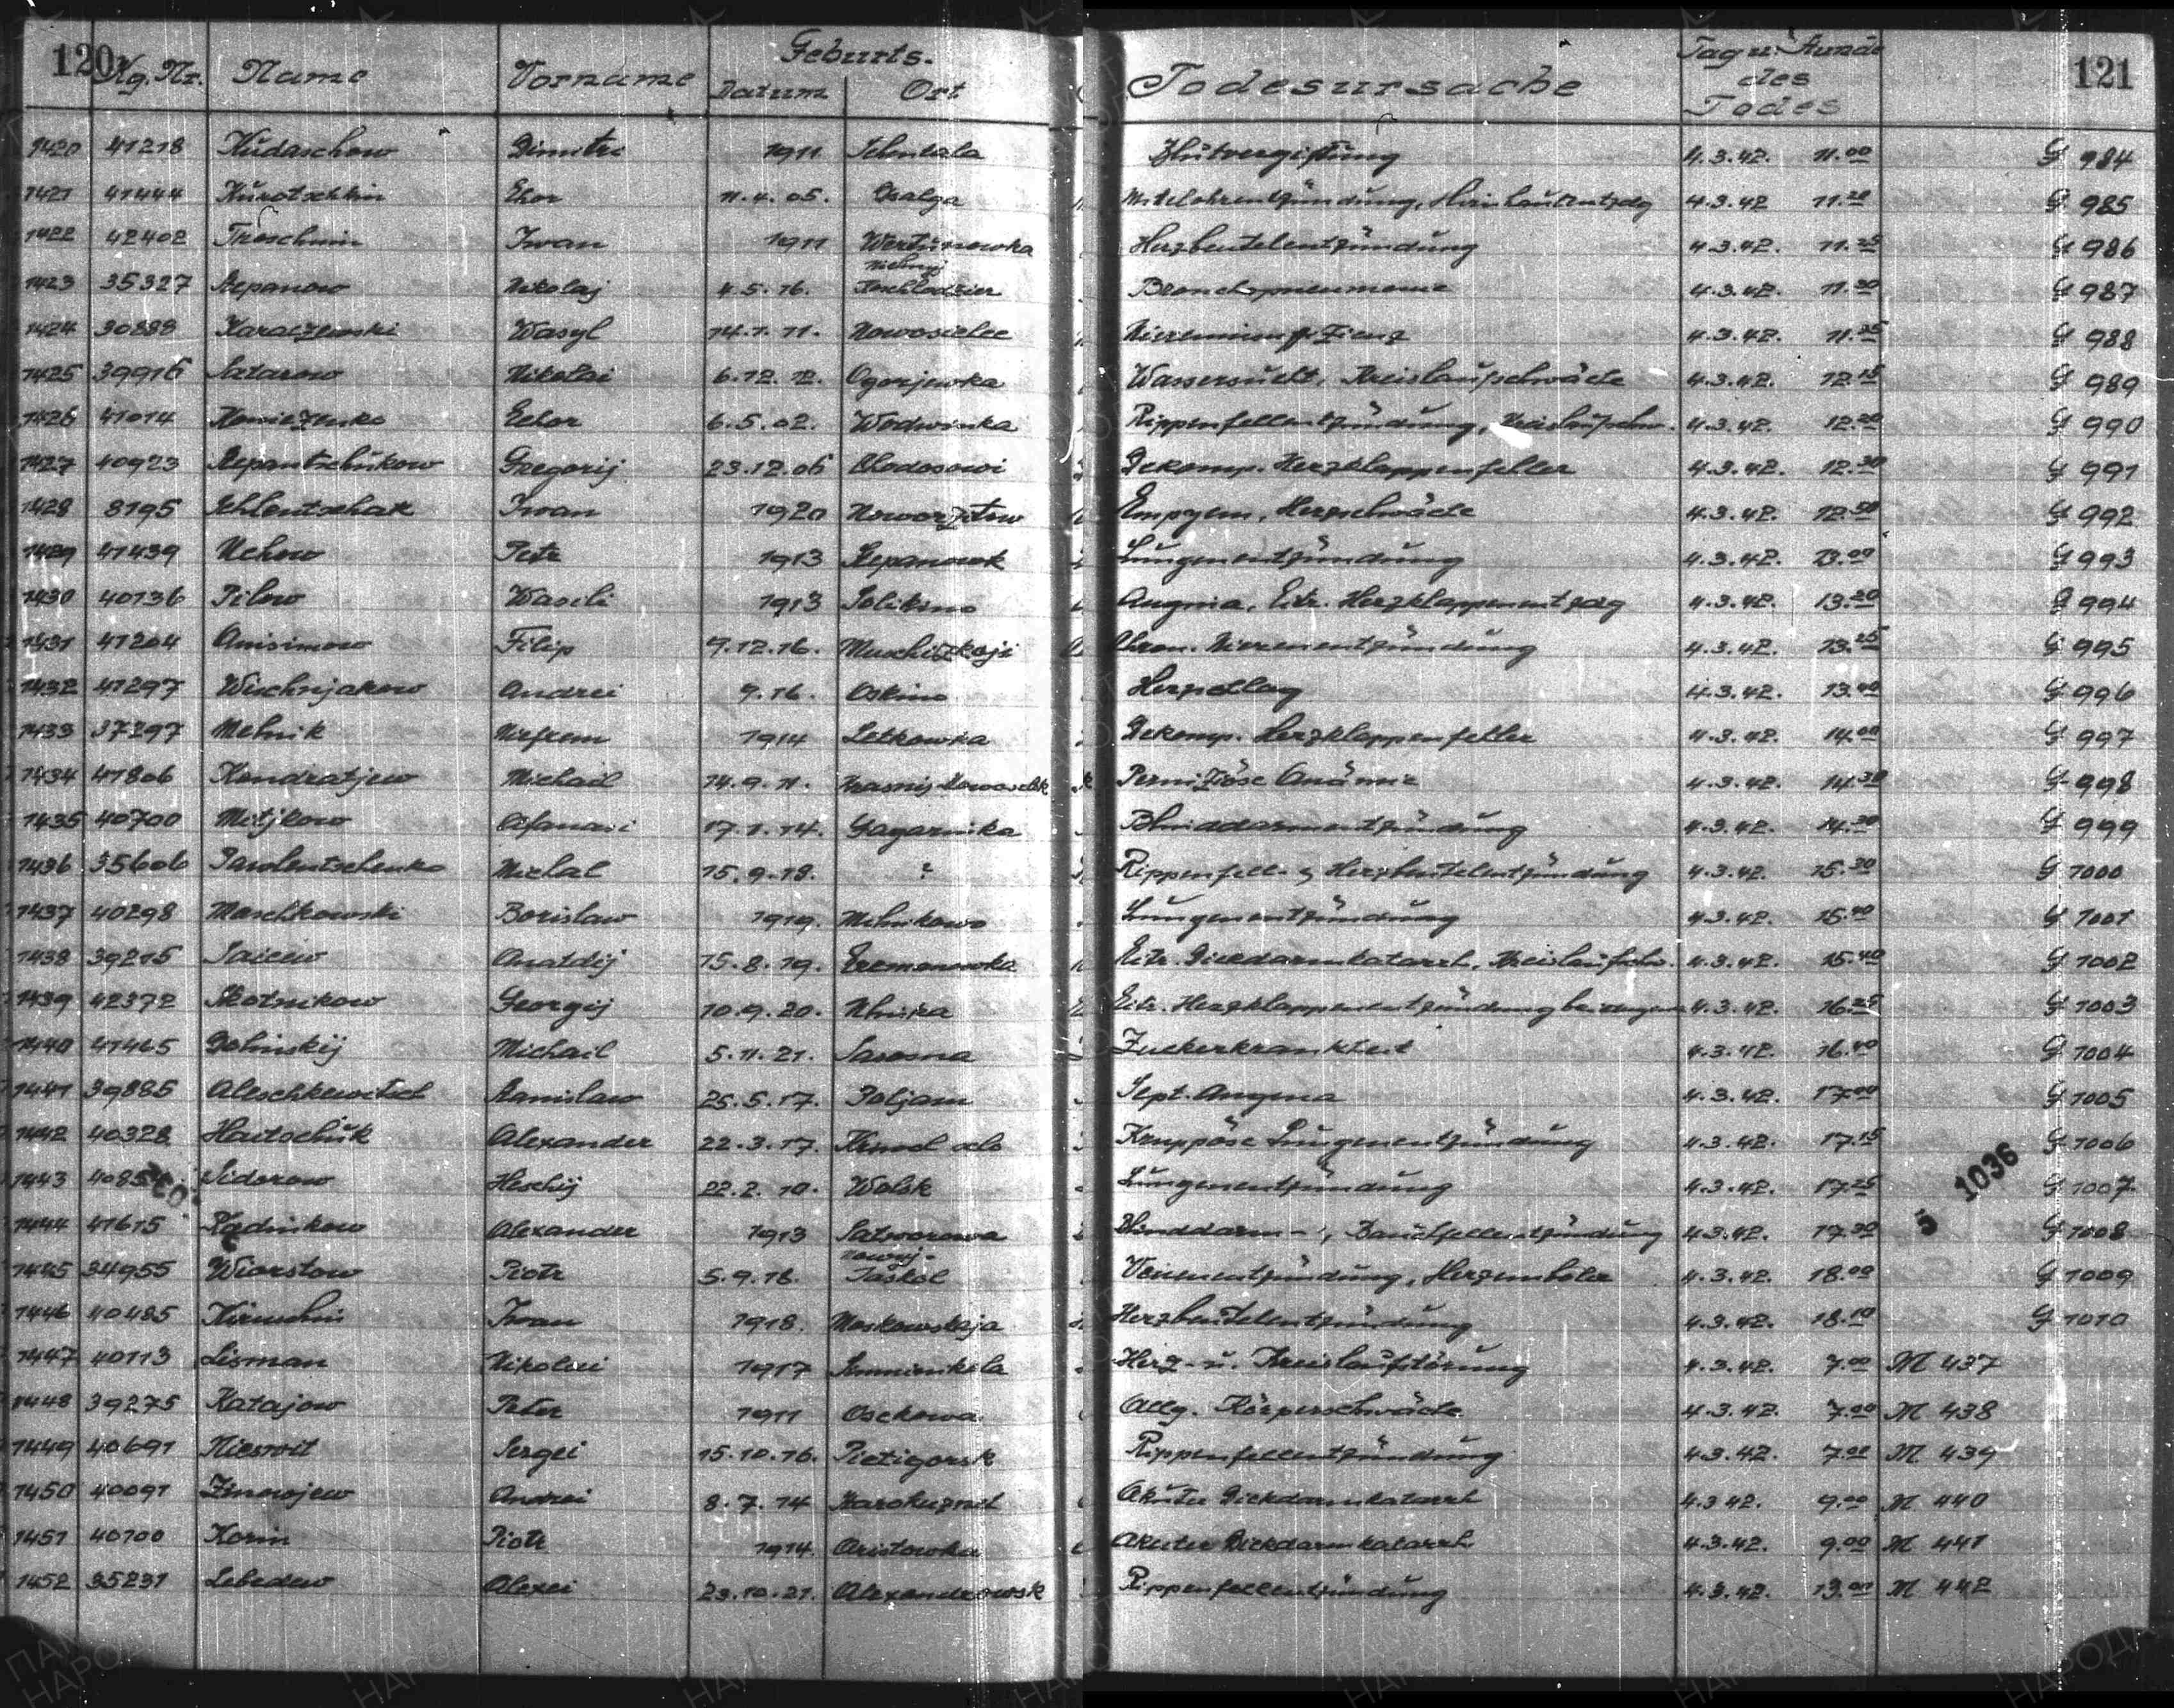 120 Kg. Nr. Name Vorname Geburts. Datum Ort Todesursache Tag u. Stunde des Todes 121
1420 41218 Kudaschow Dimitri 1911 4.3.42. 11.00 G 984
1421 41444 Kurotschkin Ehor 11.4.05. Osalga Mittelohrentzündung, 4.3.42 11.20 G 985
1422 42402 Troschnin Iwan 1911 Wertunowka Herzbeutelentzündung 4.3.42. 11.25 G 986
1423 35327 Stepanow Nikolaj 4.5.16. Bronchopneumonie 4.3.42. 11.30 G 987
1424 30888 Karaczewski Wasyl 14.1.11. Nowosielce 4.3.42. 11.35 G 988
1425 39916 Satarow Nikolai 6.12.12. Ogorjewka Wassersucht, Kreislaufschwäche 4.3.42. 12.15 G 989
1426 41014 Echor 6.5.02. Wodwinka Rippenfellentzündung, Kreislaufschw. 4.3.42. 12.20 G 990
1427 40923 Stepantschukow Gregorij 23.12.06 Chodosowi Dekomp. Herzklappenfehler 4.3.42. 12.30 G 991
1428 8195 Schlentschak Iwan 1920 Empyem, Herzschwäche 4.3.42. 12.50 G 992
1429 41439 Petr 1913 Stepanowk Lungenentzündung 4.3.42. 13.00 G 993
1430 40136 Pilow Wasili 1913 Solikino Angina, Eitr. Herzklappenentzdg 4.3.42. 13.20 G 994
1431 41204 Anisimow Filip 9.12.16. Chron. Nierenentzündung 4.3.42. 13.25 G 995
1432 41297 Wischnjakow Andrei 9.16. Oskino Herzschlag 4.3.42. 13.40 G 996
1433 37297 Melnik Letkowka Dekomp. Herzklappenfehler 1914 4.3.42. 14.00 G 997
1434 41806 Kondratjew Michail 14.9.11. Krasnij Perniziöse Anämie 4.3.42. 14.30 G 998
1435 40700 Mitjkow Afanasi 17.1.14. Gagarnika Blinddarmentzündung 4.3.42. 14.30 G 999
1436 35606 Pawlentschenko Michal 15.9.18. ? Rippenfell- u. Herzbeutelentzündung 4.3.42. 15.30 G 1000
1437 40298 Maschkowski Borislaw 1919. Melnikowo Lungenentzündung 4.3.42. 15.40 G 1001
1438 39215 Saicew Anatolij 15.8.19. Eremonowka Eitr. Dickdarmkatarrh, Kreislaufschw. 4.3.42. 15.40 G 1002
1439 42372 Skotnikow Georgij 10.9.20. Eitr. Herzklappenentzündung bei Angina 4.3.42. 16.25 G 1003
1440 41465 Golinskij Michail 5.11.21. Sarosna Zuckerkrankheit 4.3.42. 16.40 G 1004
1441 39885 Aleschkewitsch Stanislaw 25.5.17. Poljam Sept. Angina 4.3.42. 17.00 G 1005
1442 40328 Haitschuk Alexander 22.3.17. Kruppöse Lungenentzündung 4.3.42. 17.15 G 1006
1443 Sidorow Heschij 22.2.10. Wolsk Lungenentzündung 4.3.42. 17.25 5 1036 G 1007
1444 41615 Radnikow Alexander 1913 Satworowa Blinddarm-, Bauchfellentzündung 4.3.42. 17.30 G 1008
1445 34955 Wiorstow Piotr 5.9.18. Nowij-Taskol Venenentzündung, Herzembolie 4.3.42. 18.00 G 1009
1446 40485 Kiruchin Iwan 1918. Moskowskaja Herzbeutelentzündung 4.3.42. 18.10 G 1010
1447 40113 Lisman Nikolai 1917 Herz- u. Kreislaufstörung 4.3.42. 7.00 M 437
1448 39275 Katajow Peter 1911 Osekowa Allg. Körperschwäche 4.3.42. 7.00 M 438
1449 40691 Nieswit Sergei 15.10.16. Pietigorsk Rippenfellentzündung 4.3.42. 7.00 M 439
1450 40091 Zinowjew Andrei 8.7.14 Akuter Dickdarmkatarrh 4.3.42. 9.00 M 440
1451 40100 Korin Piotr 1914. Aristowka Akuter Dickdarmkatarrh 4.3.42. 9.00 M 441
1452 35231 Lebedew Alexei 23.10.21. Alexandrowsk Rippenfellentzündung 4.3.42. 13.00 M 442